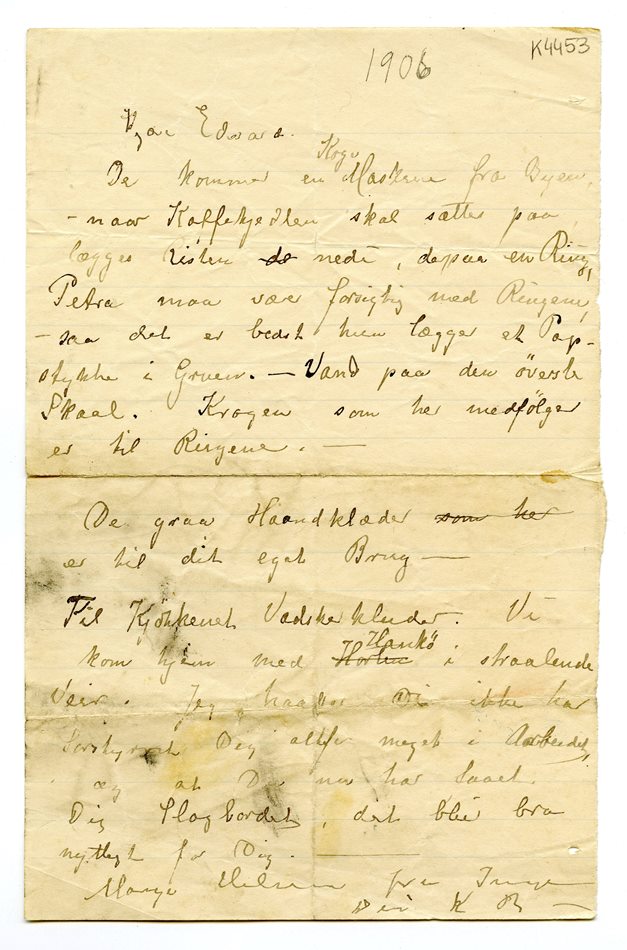 1906
K4453
Kjære Edvard.
Koge
De kommer en Maskene fra Byen,
– naar Kaffekjedlen skal sættes paa,
lægges Risten de nedi, derpaa en Ring,
Petra maa være forsigtig med Ringene,
– saa det er bedst hun lægger et Pap-
stykke i Gruen. – Vand paa den överste
Skaal. Krogen som her medfölger
er til Ringene. –
De graa Haandklæder som her
er til dit eget Brug –
Til Kjökkenet Vadskekluder. Vi
Hankö
kom hjem med Horten i straalende
Veir. Jeg haaber Vi ikke har
forstyrret Dig altfor meget i Arbeidet,
og at Du nu har faaet
Dig Slagbordet, det blir bra
nyttigt for Dig.
Mange Hilsener fra Inger
Din K B –